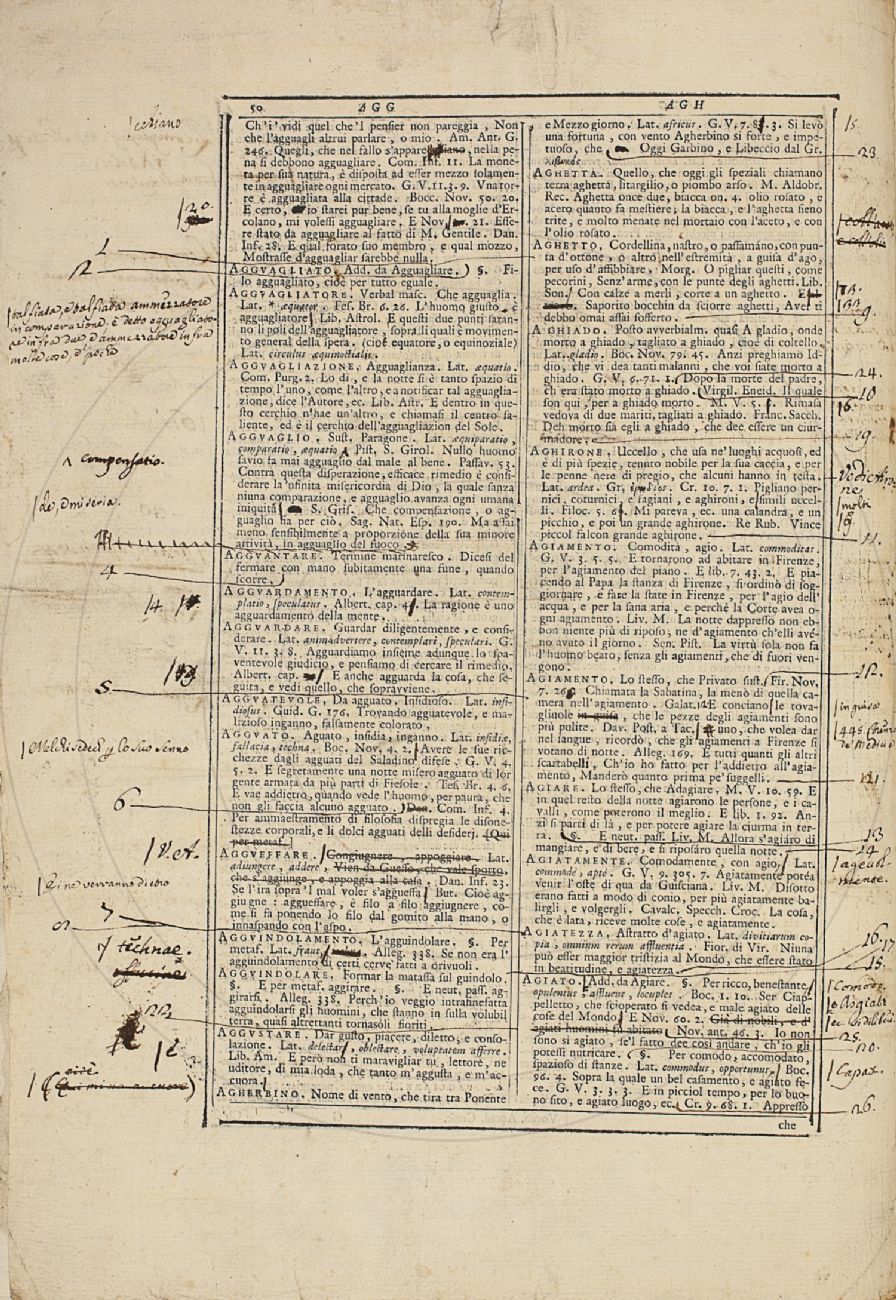 50 AGG AGH
Ch'i' vidi quel che'l pensier non pareggia, Non
che l'agguagli altrui parlare, o mio. Am. Ant. G.
246. Quegli, che nel fallo s'appare, nella pe-
na si debbono agguagliare. Com. Inf. 11. La mone-
ta per sua natura, è disposta ad esser mezzo solamen-
te in agguagliare ogni mercato. G. V. 11. 3. 9. Una tor-
re è agguagliata alla cittade. Bocc. Nov. 50. 20.
E certo, io starei pur bene, se tu alla moglie d'Er-
colano, mi volessi agguagliare. E Nov. 21. Esse-
re stato da agguagliare al fatto di M. Gentile. Dan.
Inf. 28. E qual forato suo membro, e qual mozzo,
Mostrasse d'agguagliar sarebbe nulla.
AGGUAGLIATO. Add. da Agguagliare. §. Fi-
lo agguagliato, cioè per tutto eguale.
AGGUAGLIATORE. Verbal masc. Che agguaglia.
Lat. æquator. Tes. Br. 6. 26. L'huomo giusto è
agguagliatore. Lib. Astrol. E questi due punti saran-
no li poli dell'agguagliatore, sopra li quali è movimen-
to general della spera. (cioè equatore, o equinoziale)
Lat. circulus æquinoctialis.
AGGUAGLIAZIONE. Agguaglianza. Lat. æquatio.
Com. Purg. 2. Lo dì, e la notte si è tanto spazio di
tempo l'uno, come l'altro, e a notificar tal agguaglia-
zione, dice l'Autore, ec. Lib. Astr. E dentro in que-
sto cerchio n'hae un'altro, e chiamasi il centro sa-
liente, ed è il cerchio dell'agguagliazion del Sole.
AGGUAGLIO. Sust. Paragone. Lat. æquiparatio,
comparatio, æquatio. Pist. S. Girol. Nullo huomo
savio fa mai agguaglio dal male al bene. Passav. 53.
Contra questa disperazione, efficace rimedio è consi-
derare la 'nfinita misericordia di Dio, la quale sanza
niuna comparazione, e agguaglio avanza ogni umana
iniquità. S. Gris. Che compensazione, o ag-
guaglio ha per ciò. Sag. Nat. Esp. 190. Ma assai
meno sensibilmente a proporzione della sua minore
attività, in agguaglio del fuoco.
AGGUANTARE. Termine marinaresco. Dicesi del
fermare con mano subitamente una fune, quando
scorre.
AGGUARDAMENTO. L'agguardare. Lat. contem-
platio, speculatus. Albert. cap. 4. La ragione è uno
agguardamento della mente.
AGGUARDARE. Guardar diligentemente, e consi-
derare. Lat. animadvertere, contemplari, speculari. G.
V. 11. 3. 8. Agguardiamo insieme adunque lo spa-
ventevole giudicio, e pensiamo di cercare il rimedio.
Albert. cap. E anche agguarda la cosa, che se-
guita, e vedi quello, che sopravviene.
AGGUATEVOLE. Da agguato. Insidioso. Lat. insi-
diosus. Guid. G. 176. Trovando agguatevole, e ma-
lizioso inganno, falsamente colorato.
AGGUATO. Aguato, insidia, inganno. Lat. insidiæ,
fallacia, techna. Boc. Nov. 4. 2. Avere le sue ric-
chezze dagli agguati del Saladino difese. G. V. 4.
5. 2. E segretamente una notte misero agguato di lor
gente armata da più parti di Fiesole. Tes. Br. 4. 6.
E vae addietro, quando vede l'huomo, per paura, che
non gli faccia alcuno agguato. Dan. Com. Inf. 4.
Per ammaestramento di filosofia dispregia le disone-
stezze corporali, e li dolci agguati delli desiderj. (Qui
per metaf.
AGGUEFFARE. Congiugnere, appoggiare. Lat.
adiungere, addere. Vien da Gueffo, che vale sporto,
che s'aggiunge, e appoggia alla casa. Dan. Inf. 23.
Se l'ira sopra 'l mal voler s'agguessa. But. Cioè ag-
giugne: aggueffare, è filo a filo aggiugnere, co-
me si fa ponendo lo filo dal gomito alla mano, o
innaspando con l'aspo.
AGGUINDOLAMENTO. L'agguindolare. §. Per
metaf. Lat. fraus. Alleg. 338. Se non era l'
agguindolamento di certi cerve fatti a orivuoli.
AGGUINDOLARE. Formar la matassa sul guindolo.
§. E per metaf. aggirare. §. E neut. pass. ag-
girarsi. Alleg. 338. Perch'io veggio intrafinefatta
agguindolarsi gli huomini, che stanno in sulla volubil
terra, quasi altrettanti tornasoli fioriti.
AGGUSTARE. Dar gusto, piacere, diletto, e conso-
lazione. Lat. delectare, oblectare, voluptatem afferre.
Lib. Am. E però non ti maravigliar tu, lettore, ne
uditore, di mia loda, che tanto m'aggusta, e m'ac-
cuora.
AGHERBINO. Nome di vento, che tira tra Ponente
e Mezzogiorno. Lat. africus. G. V. 7. 8. 3. Si levò
una fortuna, con vento Agherbino sì forte, e impe-
tuoso, che Oggi Garbino, e Libeccio dal Gr.
AGHETTA. Quello, che oggi gli speziali chiamano
terra aghetta, litargilio, o piombo arso. M. Aldobr.
Rec. Aghetta once due, biacca on. 4. olio rosato, e
aceto quanto fa mestiere; la biacca, e l'aghetta sieno
trite, e molto menate nel mortaio con l'aceto, e con
l'olio rosato.
AGHETTO. Cordellina, nastro, o passamano, con pun-
ta d'ottone, o altro nell'estremità, a guisa d'ago,
per uso d'affibbiare. Morg. O pigliar questi, come
pecorini, Senz'arme, con le punte degli aghetti. Lib.
Son. Con calze a merli, corte a un aghetto. E
Saporito bocchin da sciorre aghetti, Aver ti
debbo omai assai sofferto.
A GHIADO. Posto avverbialm. quasi A gladio, onde
morto a ghiado, tagliato a ghiado, cioè di coltello.
Lat. gladio. Boc. Nov. 79. 45. Anzi preghiamo Id-
dio, che vi dea tanti malanni, che voi siate morto a
ghiado. G. V. 6. 71. 1. Dopo la morte del padre,
ch'era stato morto a ghiado. (Virgil. Eneid. Il quale
fon qui, per a ghiado morto. M. V. 5. Rimasa
vedova di due mariti, tagliati a ghiado. Franc. Sacch.
Deh morto sia egli a ghiado, che dee essere un ciur-
madore.
AGHIRONE. Uccello, che usa ne' luoghi acquosi, ed
è di più spezie, tenuto nobile per la sua caccia, e per
le penne nere di pregio, che alcuni hanno in testa.
Lat. ardea. Gr. Cr. 10. 7. 1. Pigliano per-
nici, coturnici, e fagiani, e aghironi, e simili uccel-
li. Filoc. 5. 6. Mi pareva, ec. una calandra, e un
picchio, e poi un grande aghirone. Re Rub. Vince
piccol falcon grande aghirone.
AGIAMENTO. Comodità, agio. Lat. commoditas.
G. V. 3. 5. 5. E tornarono ad abitare in Firenze,
per l'agiamento del piano. E lib. 7. 43. 2. E pia-
cendo al Papa la stanza di Firenze, si ordinò di sog-
giornare, e fare la state in Firenze, per l'agio dell'
acqua, e per la sana aria, e perchè la Corte avea o-
gni agiamento. Liv. M. La notte dappresso non eb-
bon niente più di riposo, ne d'agiamento ch'elli avé-
no avuto il giorno. Sen. Pist. La virtù sola non fa
l'huomo beato, senza gli agiamenti, che di fuori ven-
gono.
AGIAMENTO. Lo stesso, che Privato sust. Fir. Nov.
7. 26 Chiamata la Sabatina, la menò di quella ca-
mera nell'agiamento. Galat. 12. E conciano le tova-
gliuole in guisa, che le pezze degli agiamenti sono
più pulite. Dav. Post. a Tac. uno, che volea dar
nel sangue, ricordò, che gli agiamenti a Firenze si
votano di notte. Alleg. 169. E tutti quanti gli altri
scartabelli, Ch'io ho fatto per l'addietro all'agia-
mento, Manderò quanto prima pe' suggelli.
AGIARE. Lo stesso, che Adagiare. M. V. 10. 59. E
in quel resto della notte agiarono le persone, e i ca-
valli, come poterono il meglio. E lib. 1. 92. An-
zi si partì di là, e per potere agiare la ciurma in ter-
ra. §. E neut. pass. Liv. M. Allora s'agiaro di
mangiare, e di bere, e si riposaro quella notte.
AGIATAMENTE. Comodamente, con agio. Lat.
commodè, aptè. G. V. 9. 305. 7. Agiatamente potéa
venir l'oste di qua da Guisciana. Liv. M. Disotto
erano fatti a modo di conio, per più agiatamente ba-
lirgli, e volgergli. Cavalc. Specch. Croc. La cosa,
che è lata, riceve molte cose, e agiatamente.
AGIATEZZA. Astratto d'agiato. Lat. divitiarum co-
pia, omnium rerum affluentia. Fior. di Vir. Niuna
può esser maggior tristizia al Mondo, che essere stato
in beatitudine, e agiatezza.
AGIATO. Add. da Agiare. §. Per ricco, benestante.
opulentus, affluent, locuples. Boc. 1. 10. Ser Ciap-
pelletto, che scioperato si vedea, e male agiato delle
cose del Mondo. E Nov. 60. 2. Già di nobili, e d'
agiati huomini fu abitato. Nov. ant. 46. 3. Io non
sono sì agiato, se'l fatto dee così andare, ch'io gli
potessi nutricare. §. Per comodo, accomodato,
spazioso di stanze. Lat. commodus, opportunus. Boc.
96. 4. Sopra la quale un bel casamento, e agiato fe-
ce. G. V. 3. 3. 3. E in picciol tempo, per lo buo-
no sito, e agiato luogo, ec. Cr. 9. 68. 1. Appresso
che
1
2
compensatio.
4
14
5
6
Vet.
7
technæ
22
cioè
15
23
9
24
10
16
19
11
12
in guisa
121
13
14
agevol-
mente.
16
17
15
25
20
Capax.
26